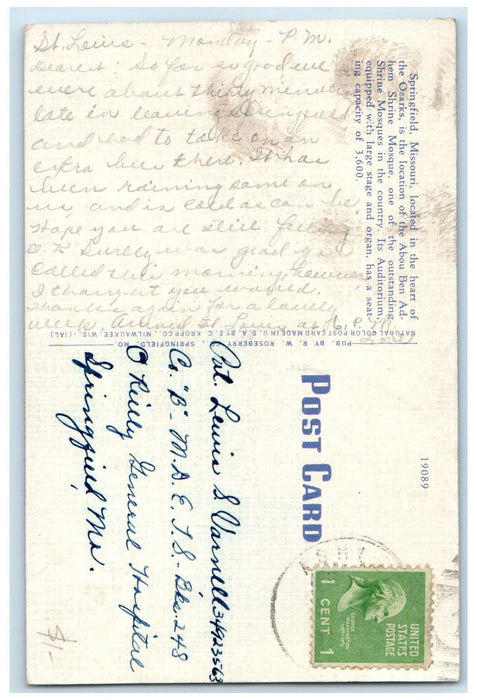 St. Louis - Monday - P.M.
Dearest: So far so good we
were about thirty minutes
late in leaving Springfield
and had to take on an
extra bus there. It has
been raining some on
us and is cold as can be
Hope you are still feeling
O.K. Surely was glad you
called this morning, however
I thought you would.
Thanks again for a lovely
week. St. Louis
Springfield, Missouri, located in the heart of
the Ozarks, is the location of the Abou Ben Ad-
hem Shrine Mosque, one of the outstanding
Shrine Mosques in the country. Its Auditorium,
equipped with large stage and organ, has a seat-
ing capacity of 3,600.
PUB. BY R. W. ROSEBERRY, SPRINGFIELD, MO.
NATURAL COLOR POST CARD MADE IN U.S.A. BY E. C. KROPP CO., MILWAUKEE, WIS.
POST CARD
19089
UNITED
STATES
POSTAGE
GEORGE
WASHINGTON
1 CENT 1
Pvt. Lewis S. Varnell 34923563
Co. "B" - M.D.E.T.S. - Bks-248
O'Reilly General Hospital
Springfield, Mo.
$1-